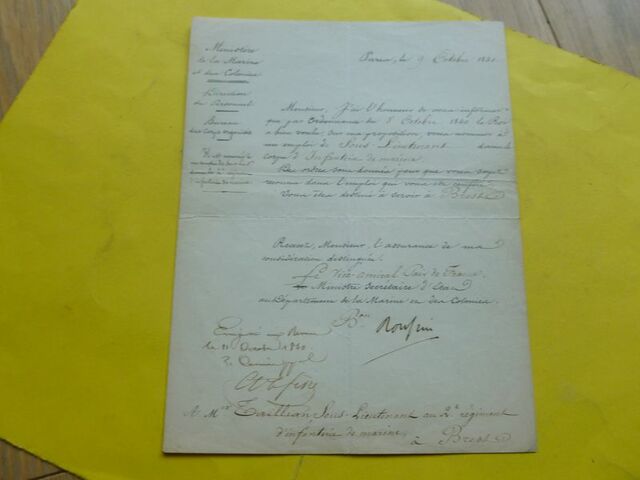 Ministère
de la Marine
et des Colonies
Direction
du Personnel
Bureau
des Corps organisés
Paris, le 9 Octobre 1840
Monsieur, J'ai l'honneur de vous informer
que par Ordonnance du 8 Octobre 1840 le Roi
a bien voulu, sur ma proposition, vous nommer à
un emploi de Sous-Lieutenant dans le
corps d'Infanterie de marine.
Des ordres sont donnés pour que vous soyez
reconnu dans l'emploi qui vous est conféré
Vous êtes destiné à servir à Brest
Recevez, Monsieur, l'assurance de ma
considération distinguée.
Le Vice amiral Pair de France,
Ministre Secrétaire d'Etat
au Département de la Marine et des Colonies
Bon Roussin
le 21 1840
A Mr Sous-Lieutenant au 2e régiment
d'infanterie de marine,
à Brest